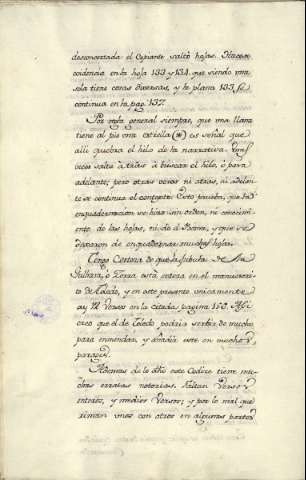 desmembrada el Copiante saltó hojas.
cadencia en la hoja 133 y 134. que siendo una
sola tiene caras diversas, y la plana 133, se
continua en la pag. 137.
Por regla general siempre, que una llana
tiene al pie una estrella (*) es señal que
alli quebra el hilo de la narrativa.
veces salta atras a buscar el hilo, ó para
adelante; pero otras veces ni atras, ni adelan-
te se continua el contexto. Esto proviene, que la
enquadernacion se hizo sin orden, ni conocimien-
to de las hojas, ni de el Poema, y que se
dexaron de enquadernar muchas hojas.
Tengo Certeza de que la fabula de
ó Zorra está entera en el manuscrito
de Toledo, y en este presente unicamente
ay 12 Versos en la citada pagina 150. Assi
creo que el de Toledo podria servir de mucho
para enmendar, y añadir este en muchos
parages.
Ademas de lo dho este Codice tiene mu-
chas erratas notorias. Faltan Versos
enteros, y medios Versos; y por lo mal que
riman unos con otros en algunas partes